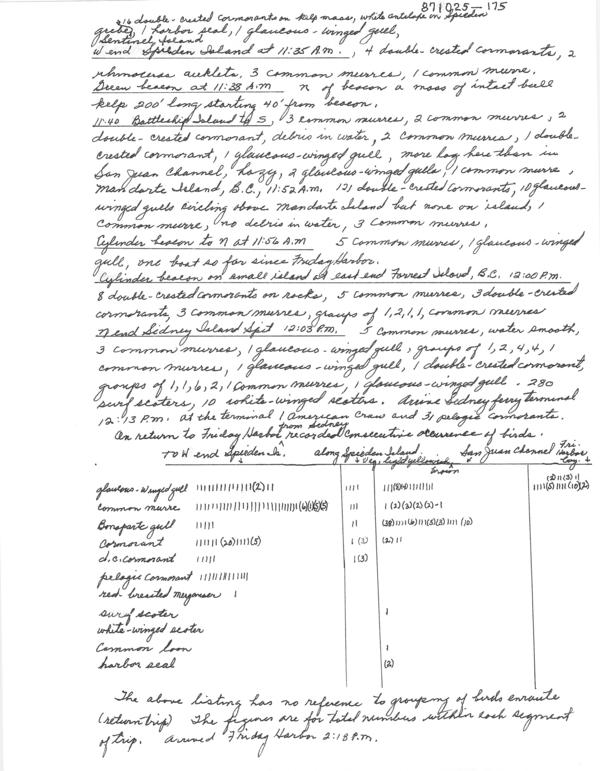 871025-175
416 double-crested cormorants on kelp mass, white antelope on Spieden
grebes, 1 harbor seal, 1 glaucous-winged gull,
Sentinel Island
W end Spieden Island at 11:35 A.M., 4 double-crested cormorants, 2
rhinoceros auklets, 3 common murres, 1 common murre.
Green beacon at 11:38 A.M n of beacon a mass of intact bull
kelp 200' long starting 40' from beacon.
11:40 Battleship Island to S, 3 common murres, 2 common murres, 2
double-crested cormorant, debris in water, 2 common murres, 1 double-
crested cormorant, 1 glaucous-winged gull, more fog here than in
San Juan Channel, hazy, 2 glaucous-winged gulls, 1 common murre,
Mandarte Island, B.C., 11:52 A.M. 121 double-crested cormorants, 10 glaucous-
winged gulls circling above Mandarte Island but none on island, 1
common murre, no debris in water, 3 common murres,
Cylinder beacon to N at 11:56 A.M 5 common murres, 1 glaucous-winged
gull, one boat so far since Friday Harbor.
Cylinder beacon on small island at east end Forrest Island, B.C. 12:00 P.M.
8 double-crested cormorants on rocks, 5 common murres, 3 double-crested
cormorants, 3 common murres, groups of 1,2,1,1, common murres
N end Sidney Island Spit 12:03 P.M. 5 common murres, water smooth,
3 common murres, 1 glaucous-winged gull, groups of 1,2,4,4,1
common murres, 1 glaucous-winged gull, 1 double-crested cormorant,
groups of 1,1,6,2,1 common murres, 1 glaucous-winged gull - 280
surf scoters, 10 white-winged scoters. Arrive Sidney ferry terminal
12:13 P.M. at the terminal 1 American Crow and 31 pelagic cormorants.
On return to Friday Harbor from Sidney recorded consecutive occurrence of birds.
To W end Spieden Is. along Spieden Island San Juan Channel Fri. Harbor
veg. light yellowish brown
glaucous-winged gull
common murre
Bonaparte gull
Cormorant
d.c. cormorant
pelagic cormorant
red-breasted merganser
surf scoter
white-winged scoter
Common loon
harbor seal (2)
The above listing has no reference to grouping of birds enroute
(return trip) The figures are for total numbers within each segment
of trip. Arrived Friday Harbor 2:18 P.M.